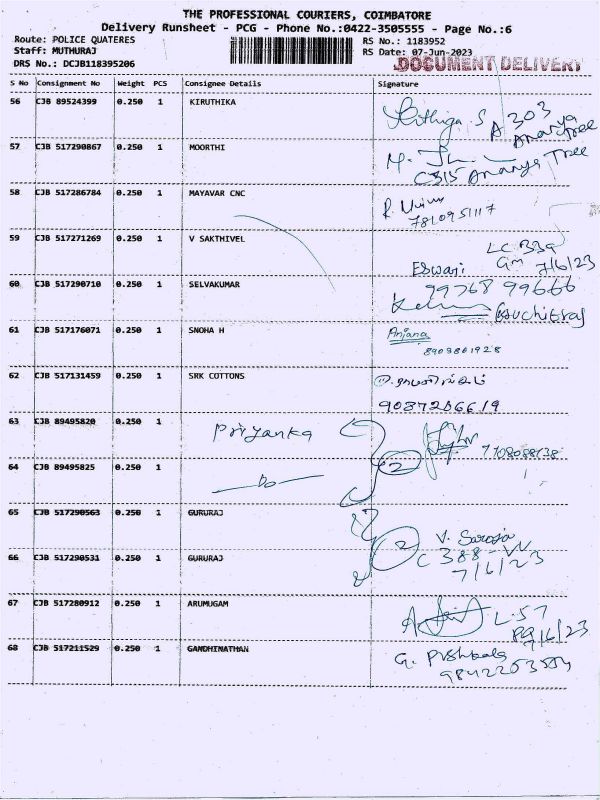 THE PROFESSIONAL COURIERS, COIMBATORE
Delivery Runsheet - PCG - Phone No.:0422-3505555 - Page No.:6
Route: POLICE QUATERES
RS No.: 1183952
Staff: MUTHURAJ
RS Date: 07-Jun-2023
DRS No.: DCJB118395206
DOCUMENT DELIVERY
S No Consignment No Weight PCS Consignee Details Signature
56 CJB 89524399 0.250 1 KIRUTHIKA
A 303
Ananya Tree
57 CJB 517290867 0.250 1 MOORTHI
C315 Ananya Tree
58 CJB 517286784 0.250 1 MAYAVAR CNC
7810951117
59 CJB 517271269 0.250 1 V SAKTHIVEL
Eswari 7/6/23
60 CJB 517290710 0.250 1 SELVAKUMAR
99768 99666
61 CJB 517176071 0.250 1 SNOHA H Anjana
8903861928
62 CJB 517131459 0.250 1 SRK COTTONS
9087206619
63 CJB 89495820 0.250 1 Priyanka
7708088138
64 CJB 89495825 0.250 1 Do 2
65 CJB 517290563 0.250 1 GURURAJ
V. Saroja
66 CJB 517290531 0.250 1 GURURAJ 2 C 388-VV
7/6/23
67 CJB 517280912 0.250 1 ARUMUGAM L-57
68 CJB 517211529 0.250 1 GANDHINATHAN G. Pushpala